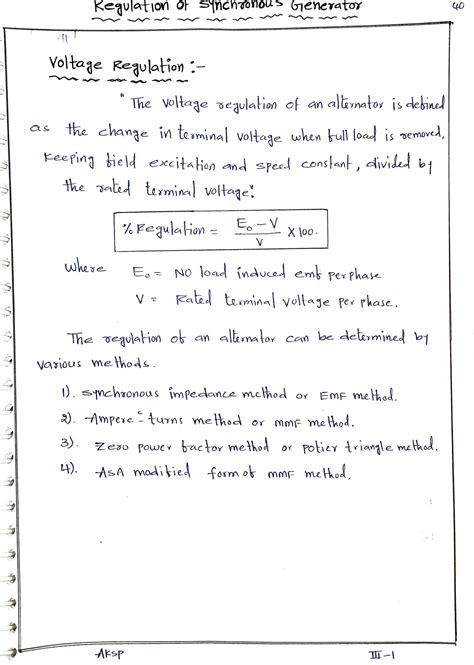 Regulation of Synchronous Generator
40
Voltage Regulation :-
"The voltage regulation of an alternator is defined
as the change in terminal voltage when full load is removed,
keeping field excitation and speed constant, divided by
the rated terminal voltage".
% Regulation = E₀ - V / V × 100.
where E₀ = No load induced emf per phase
V = Rated terminal voltage per phase.
The regulation of an alternator can be determined by
various methods.
1). Synchronous impedance method or EMF method.
2). Ampere - turns method or mmF method.
3). Zero power factor method or potier triangle method.
4). ASA modified form of mmF method.
AKSP
III-1